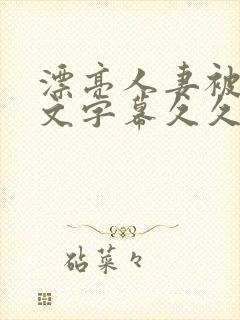 漂亮人妻被
文字幕久久
砧菜々